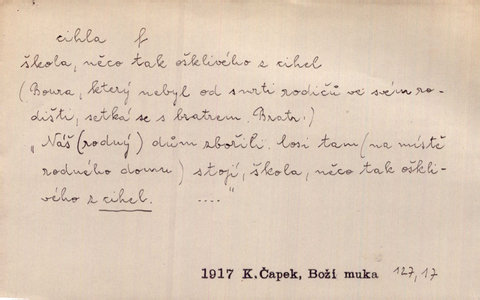 cihla f
škola, něco tak ošklivého z cihel
(Boura, který nebyl od smrti rodičů ve svém ro-
dišti, setká se s bratrem. Bratr:)
„Náš (rodný) dům zbořili. Cosi tam (na místě
rodného domu) stojí, škola, něco tak oškli-
vého z cihel. ...."
1917 K.Čapek, Boží muka 127,17